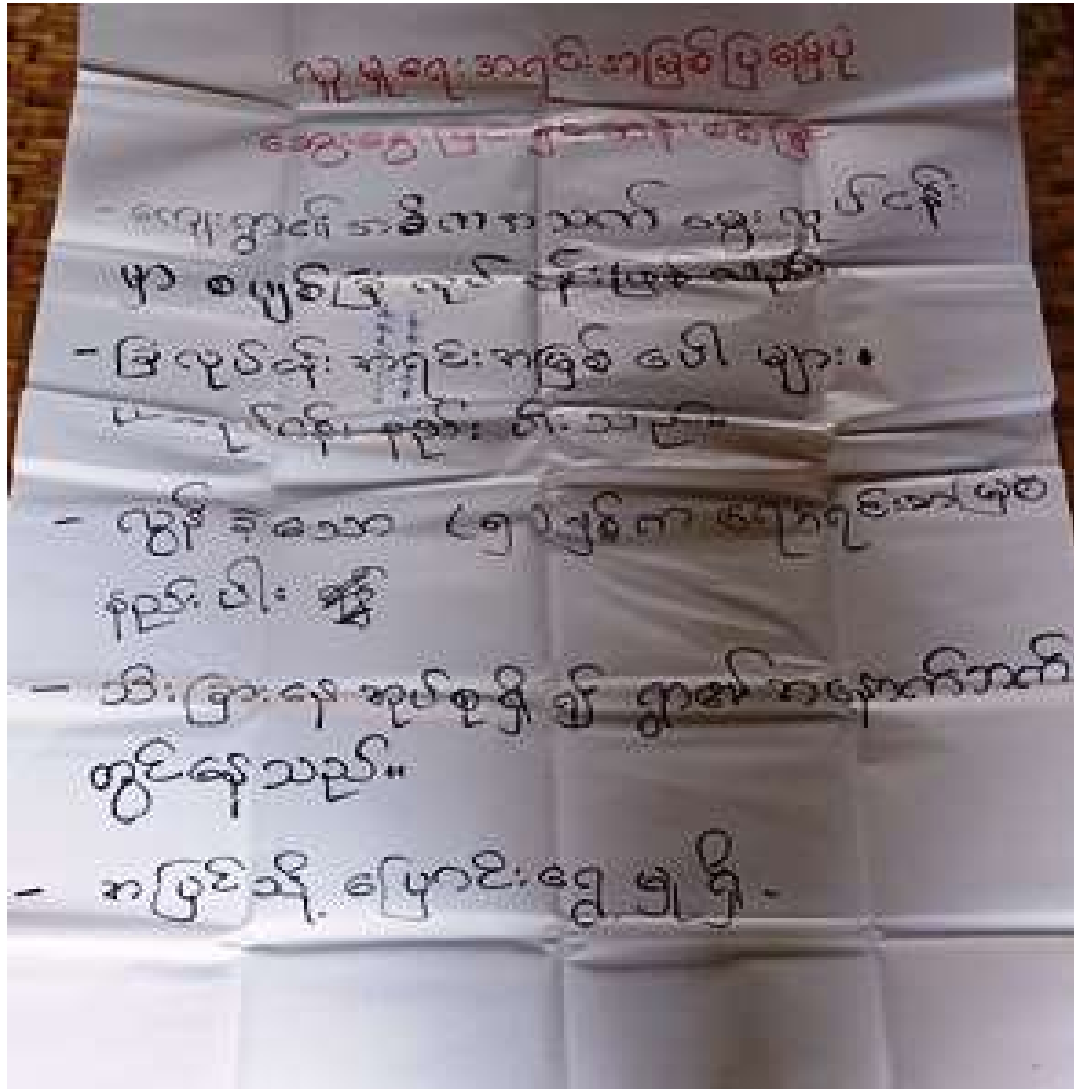 လူမှုရေး အရင်းအမြစ်ပြမြေပုံ
ဆွေးနွေးခြင်း
- ကျေးရွာ၏ အဓိကအသက်မွေးလုပ်ငန်း
မှာ စပျစ်ခြံ လုပ်ငန်းဖြစ်သည်။
- ခြံလုပ်ငန်း အရင်းအမြစ် ပေါများ။
လုပ်ငန်း နည်းပါးသည်။
- လွန်ခဲ့သော နှစ်က ရေအရင်းအမြစ်
နည်းပါး
- သီးခြားနေ အုပ်စုရှိ၍ ရွာ၏အနောက်ဘက်
တွင်နေသည်။
- အပြင်သို့ ပြောင်းရွှေ့မှုရှိ -